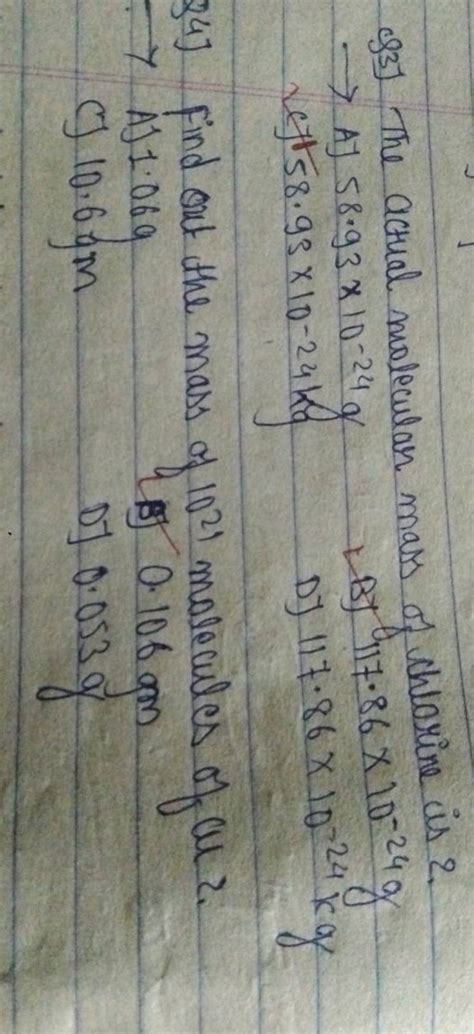 Q3] The actual molecular mass of chlorine is ?
→ A] 58.93 × 10⁻²⁴ g B] 117.86 × 10⁻²⁴ g
C] 58.93 × 10⁻²⁴ kg D] 117.86 × 10⁻²⁴ kg
Q4] Find out the mass of 10²¹ molecules of Cu ?
→ A] 1.06g B] 0.106 gm
C] 10.6 gm D] 0.053 g